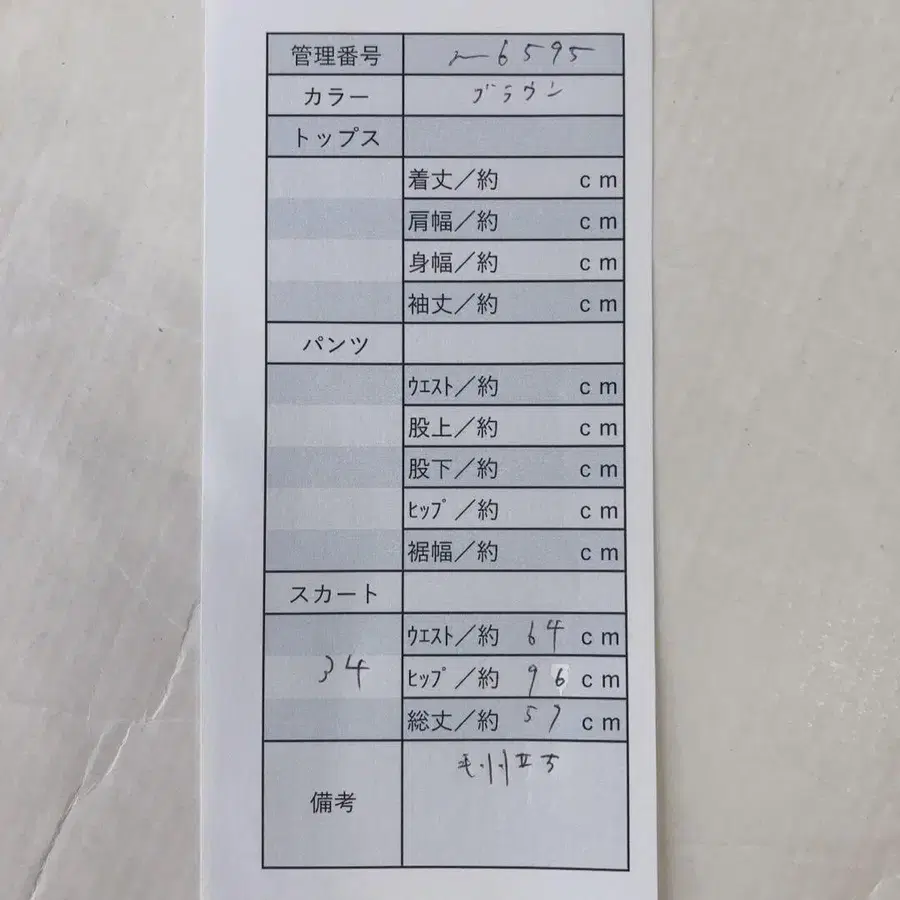 管理番号 6595
カラー ブラウン
トップス
着丈／約 cm
肩幅／約 cm
身幅／約 cm
袖丈／約 cm
パンツ
ｳｴｽﾄ／約 cm
股上／約 cm
股下／約 cm
ﾋｯﾌﾟ／約 cm
裾幅／約 cm
スカート
34
ｳｴｽﾄ／約 64 cm
ﾋｯﾌﾟ／約 96 cm
総丈／約 57 cm
備考